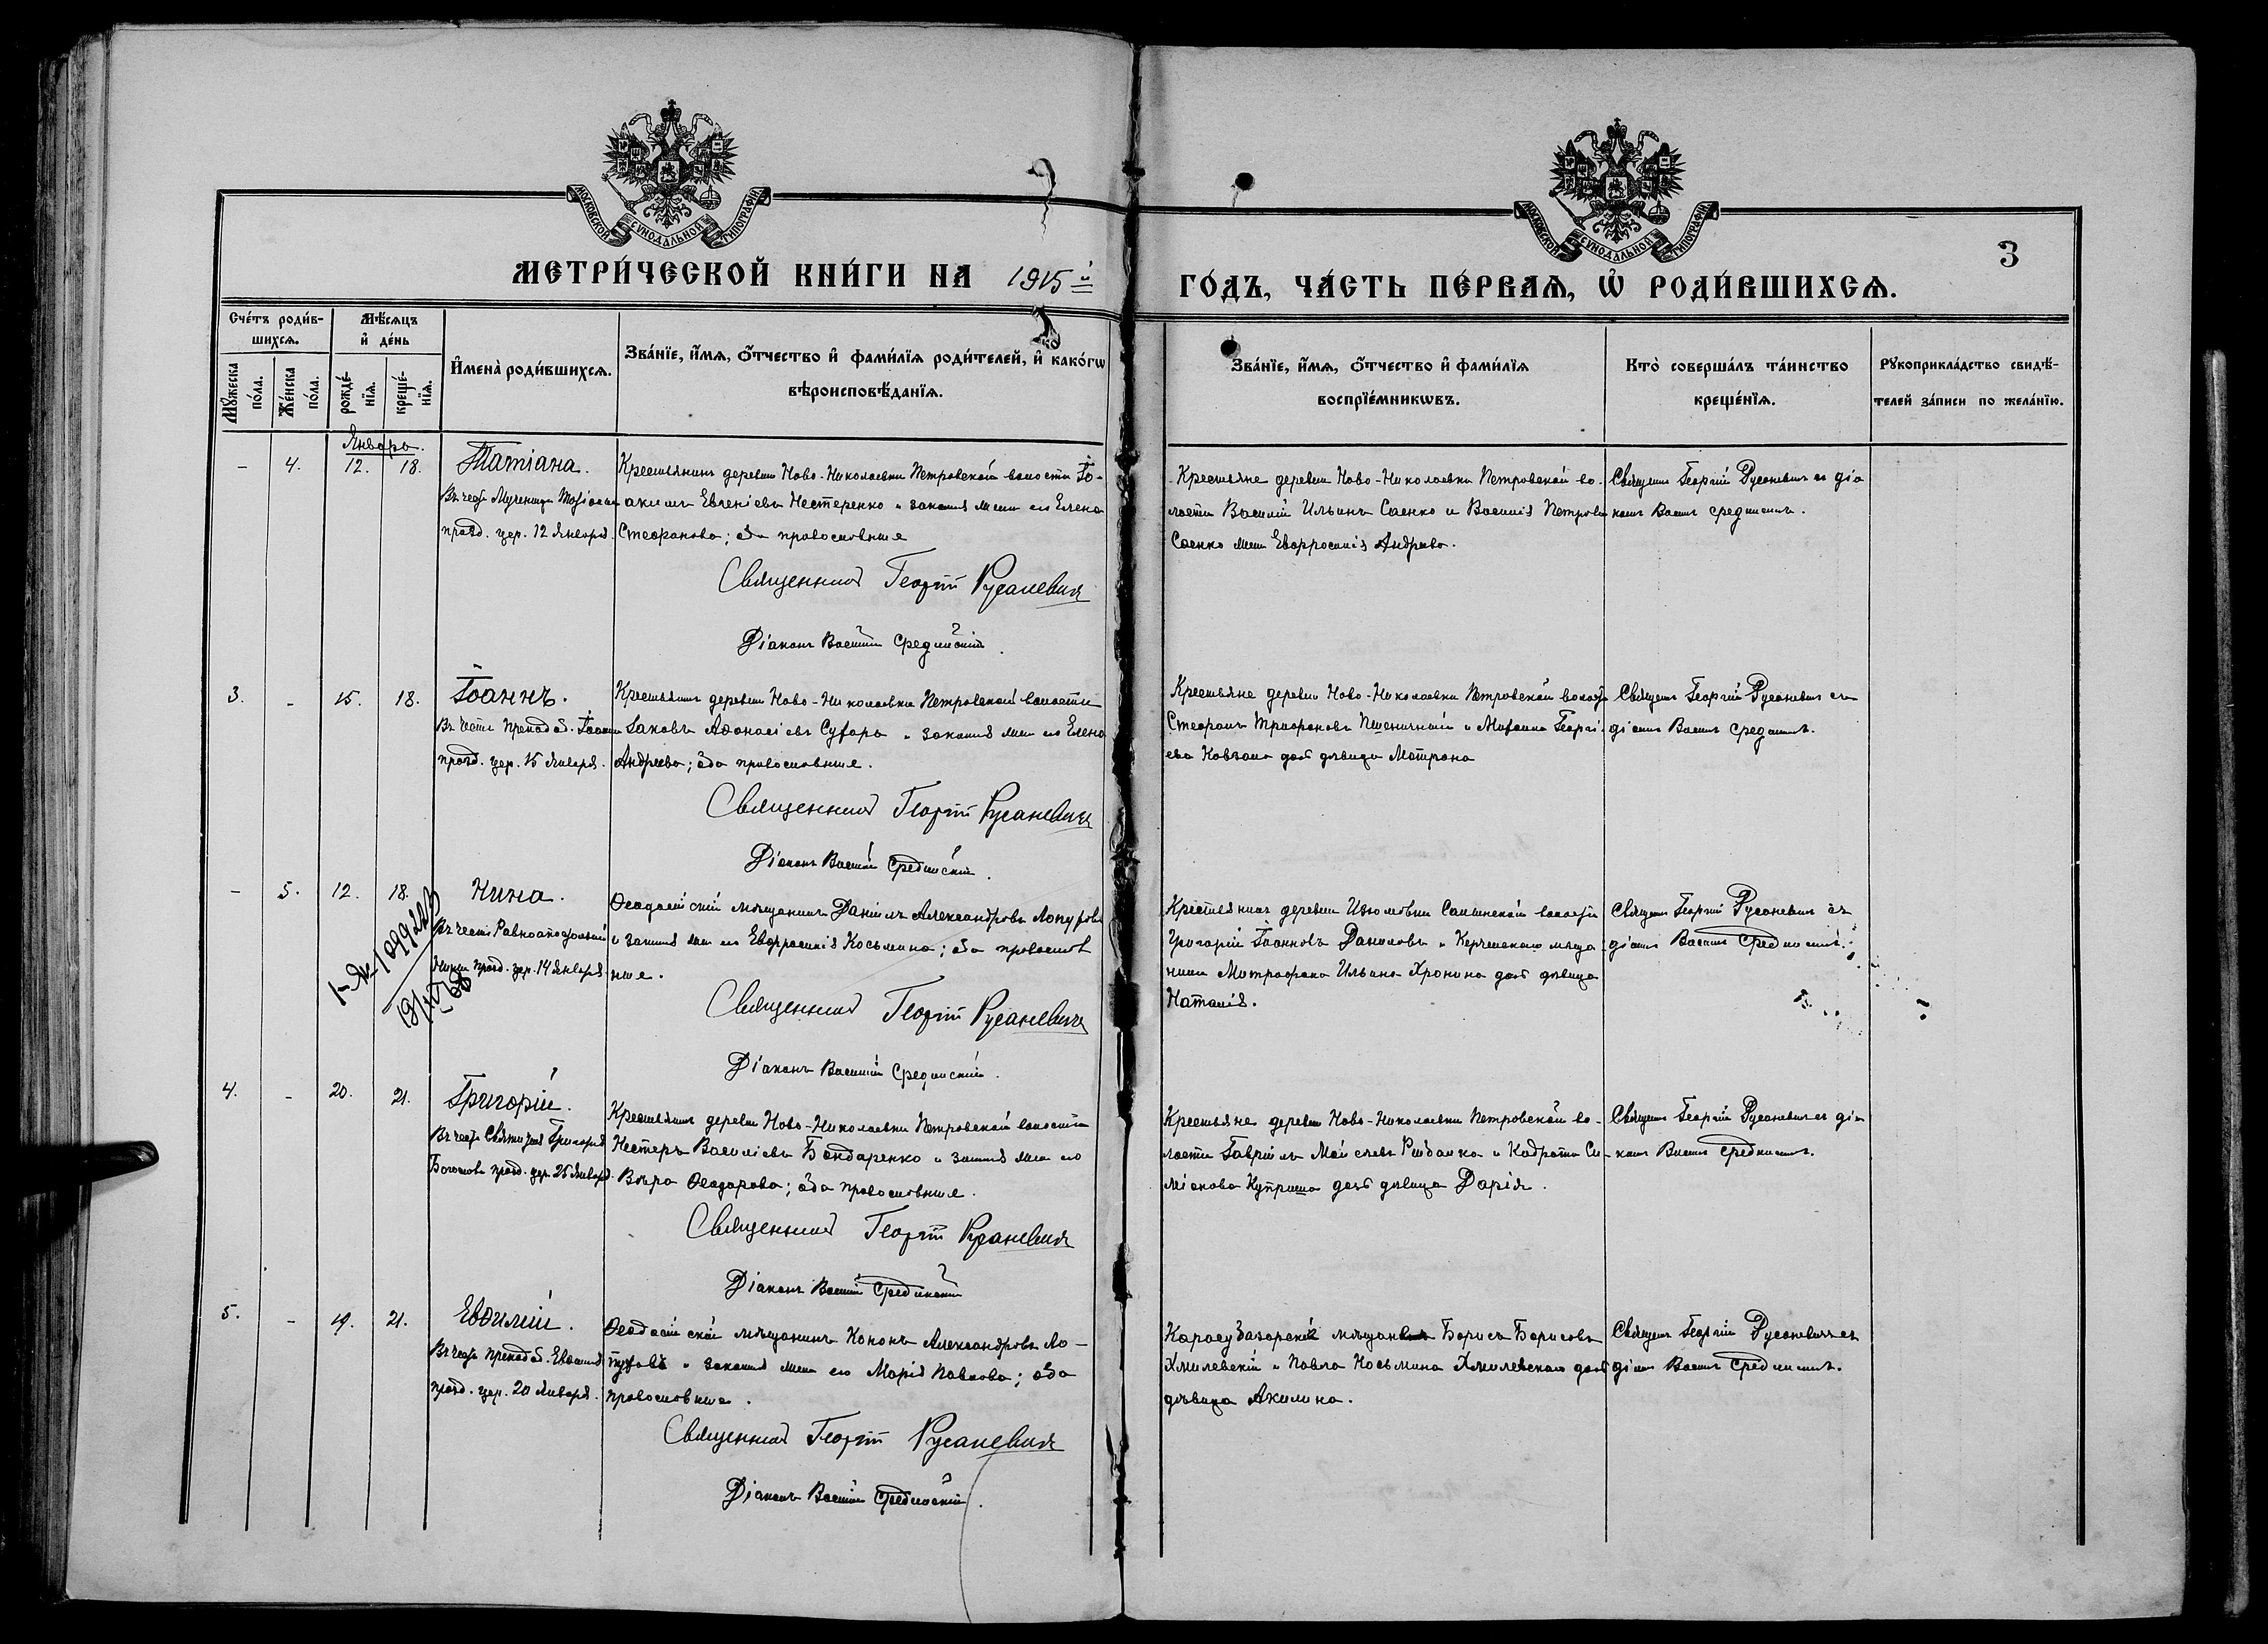 МОСКОВСКОЙ СѴНОДАЛЬНОЙ ТИПОГРАФІИ
МОСКОВСКОЙ СѴНОДАЛЬНОЙ ТИПОГРАФІИ
3
МЕТРИ́ЧЕСКОЙ КНИ́ГИ НА 1915й
ГО́ДЪ, ЧА́СТЬ ПЕ́РВАѦ, Ѡ҆ РОДИ́ВШИХСѦ.
Сче́тъ роди́в-
шихсѧ.
Мꙋ́жеска
по́ла.
Же́нска
по́ла.
Мѣ́сѧцъ
и҆ де́нь
рожде́-
нїѧ.
креще́-
нїѧ.
И҆мена̀ роди́вшихсѧ.
Зва́нїе, и҆́мѧ, ѻ҆́тчество и҆ фами́лїѧ роди́телей, и҆ како́гѡ
вѣроисповѣ́данїѧ.
Зва́нїе, и҆́мѧ, ѻ҆́тчество и҆ фами́лїѧ
воспрїе́мникѡвъ.
Кто̀ соверша́лъ та́инство
креще́нїѧ.
Рꙋкоприкла́дство свидѣ́-
телей за́писи по жела́нїю.
Январь.
- 4. 12. 18.
Татіана.
Въ честь Мученицы Татіаны
празд. цер. 12 Января.
Крестьянинъ деревни Ново-Николаевки Петровской волости Іо-
акимъ Евгеніевъ Нестеренко и законная жена его Елена
Стефанова; оба православные
Священникъ Георгій Русаневичъ
Діаконъ Василій Срединскій.
Крестьяне деревни Ново-Николаевки Петровской во-
лости Василій Ильинъ Саенко и Василія Петрова
Саенко жена Евфросинія Андреева.
Священ. Георгій Русаневичъ съ діа
кон. Васил. Срединскимъ.
3. - 15. 18.
Іоаннъ.
Въ честь Преподоб. Іоанна
празд. цер. 15 Января.
Крестьянинъ деревни Ново-Николаевки Петровской волости
Іаковъ Афанасіевъ Сухарь и законная жена его Елена
Андреева; оба православные.
Священникъ Георгій Русаневичъ
Діаконъ Василій Срединскій.
Крестьяне деревни Ново-Николаевки Петровской волости
Стефанъ Трифоновъ Пшеничный и Михаила Георгі-
ева Ковзана дочь дѣвица Матрона
Священ. Георгій Русаневичъ съ
діакон. Васил. Срединскимъ.
- 5. 12. 18.
Нина.
Въ честь Равноапостольной
Нины празд. цер. 14 Января.
Ѳеодосійскій мѣщанинъ Даніилъ Александровъ Лопуховъ
и законная жена его Евфросинія Косьмина; оба православ
ные.
Священникъ Георгій Русаневичъ
Діаконъ Василій Срединскій.
Крестьянинъ деревни Изюмовки Салынской волости
Григорій Іоанновъ Даниловъ и Керченского мѣща-
нина Митрофана Ильина Хронина дочь дѣвица
Наталія.
Священ. Георгій Русаневичъ съ
діакон. Васил. Срединскимъ.
4. - 20. 21.
Григорій.
Въ честь Святителя Григорія
Богослова празд. цер. 25 Января.
Крестьянинъ деревни Ново-Николаевки Петровской волости
Нестеръ Василіевъ Бондаренко и законная жена его
Вѣра Ѳеодорова; оба православные.
Священникъ Георгій Русаневичъ
Діаконъ Василій Срединскій
Крестьяне деревни Ново-Николаевки Петровской во-
лости Гавріилъ Моисеевъ Рыбалка и Кодрата Си-
меонова Куприша дочь дѣвица Дарія.
Священ. Георгій Русаневичъ съ діа
кон. Васил. Срединскимъ.
5. - 19. 21.
Евѳимій.
Въ честь Преподоб. Евѳимія
празд. цер. 20 Января.
Ѳеодосійскій мѣщанинъ Кононъ Александровъ Ло-
пуховъ и законная жена его Марія Павлова; оба
православные.
Священникъ Георгій Русаневичъ
Діаконъ Василій Срединскій.
Карасубазарскіе мѣщане Борисъ Борисовъ
Хмилевскій и Павла Косьмина Хмилевского дочь
дѣвица Акилина.
Священ. Георгій Русаневичъ съ
діакон. Васил. Срединскимъ.